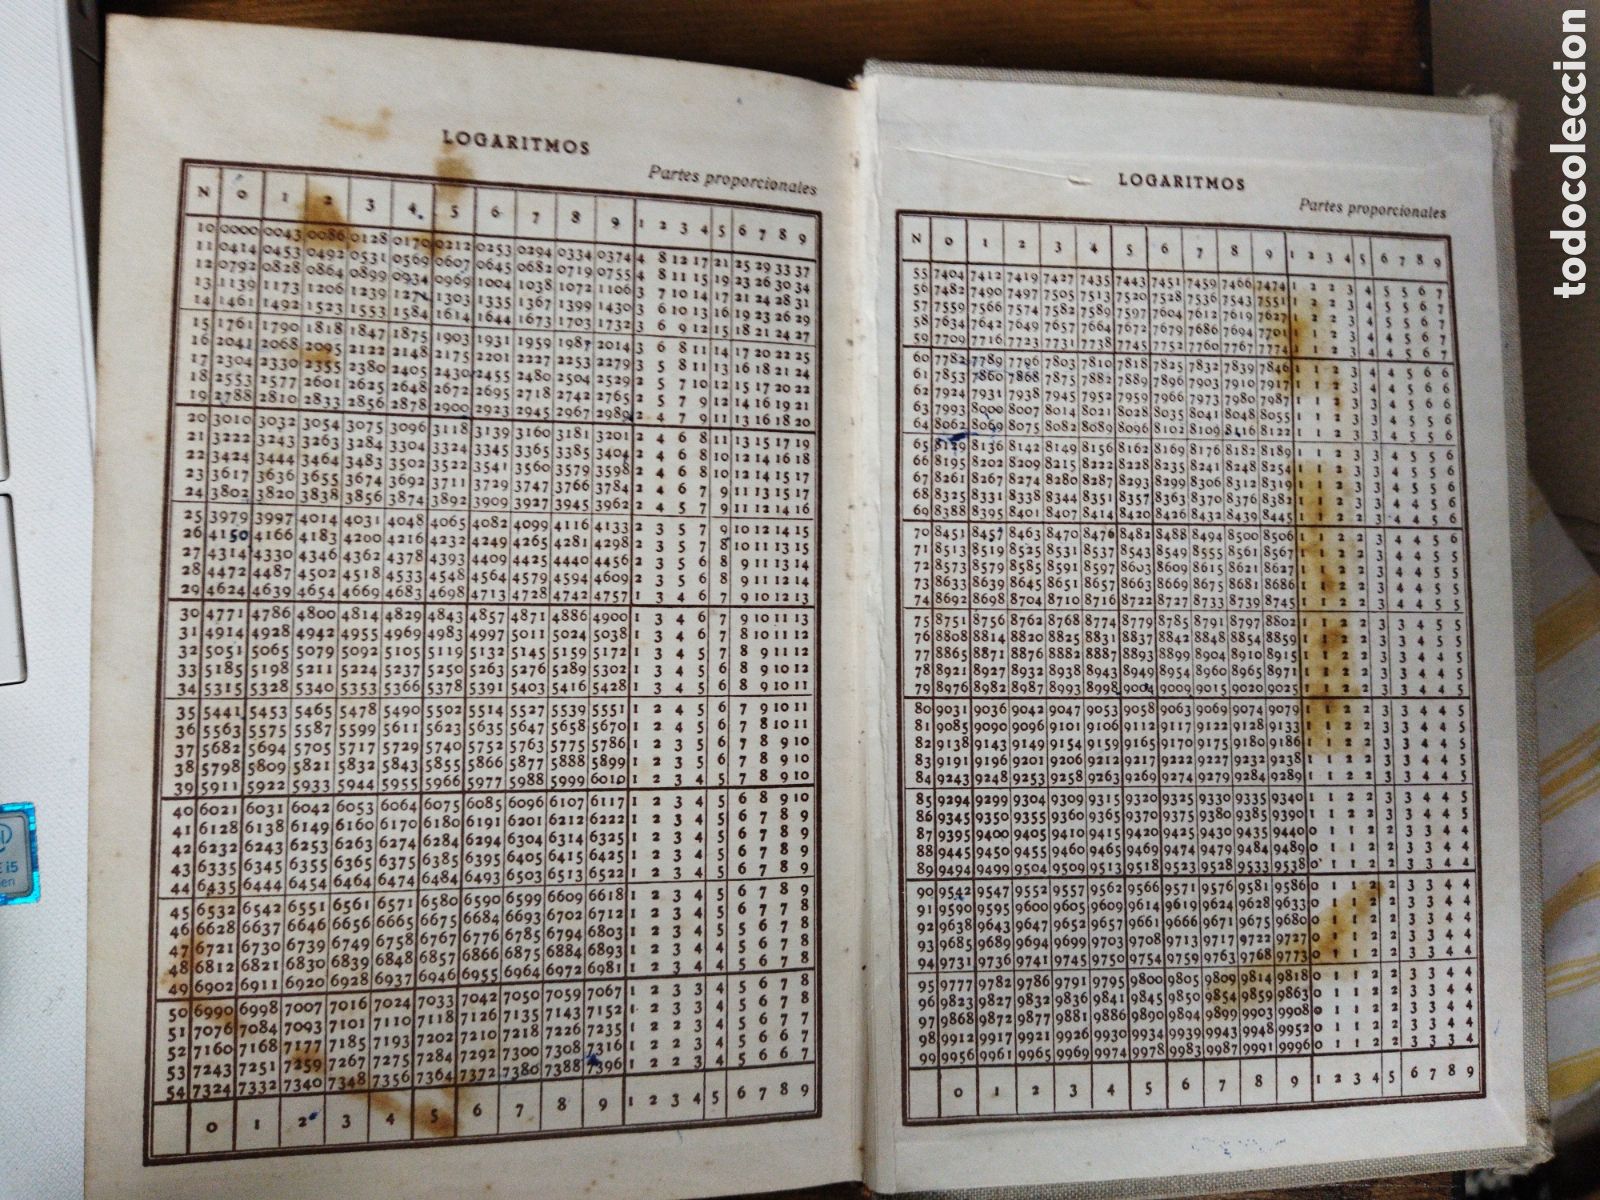 LOGARITMOS
Partes proporcionales
N 0 1 2 3 4 5 6 7 8 9 1 2 3 4 5 6 7 8 9
10 0000 0043 0086 0128 0170 0212 0253 0294 0334 0374 4 8 12 17 21 25 29 33 37
11 0414 0453 0492 0531 0569 0607 0645 0682 0719 0755 4 8 11 15 19 23 26 30 34
12 0792 0828 0864 0899 0934 0969 1004 1038 1072 1106 3 7 10 14 17 21 24 28 31
13 1139 1173 1206 1239 1271 1303 1335 1367 1399 1430 3 6 10 13 16 19 23 26 29
14 1461 1492 1523 1553 1584 1614 1644 1673 1703 1732 3 6 9 12 15 18 21 24 27
15 1761 1790 1818 1847 1875 1903 1931 1959 1987 2014 3 6 8 11 14 17 20 22 25
16 2041 2068 2095 2122 2148 2175 2201 2227 2253 2279 3 5 8 11 13 16 18 21 24
17 2304 2330 2355 2380 2405 2430 2455 2480 2504 2529 2 5 7 10 12 15 17 20 22
18 2553 2577 2601 2625 2648 2672 2695 2718 2742 2765 2 5 7 9 12 14 16 19 21
19 2788 2810 2833 2856 2878 2900 2923 2945 2967 2989 2 4 7 9 11 13 16 18 20
20 3010 3032 3054 3075 3096 3118 3139 3160 3181 3201 2 4 6 8 11 13 15 17 19
21 3222 3243 3263 3284 3304 3324 3345 3365 3385 3404 2 4 6 8 10 12 14 16 18
22 3424 3444 3464 3483 3502 3522 3541 3560 3579 3598 2 4 6 8 10 12 14 15 17
23 3617 3636 3655 3674 3692 3711 3729 3747 3766 3784 2 4 6 7 9 11 13 15 17
24 3802 3820 3838 3856 3874 3892 3909 3927 3945 3962 2 4 5 7 9 11 12 14 16
25 3979 3997 4014 4031 4048 4065 4082 4099 4116 4133 2 3 5 7 9 10 12 14 15
26 4150 4166 4183 4200 4216 4232 4249 4265 4281 4298 2 3 5 7 8 10 11 13 15
27 4314 4330 4346 4362 4378 4393 4409 4425 4440 4456 2 3 5 6 8 9 11 13 14
28 4472 4487 4502 4518 4533 4548 4564 4579 4594 4609 2 3 5 6 8 9 11 12 14
29 4624 4639 4654 4669 4683 4698 4713 4728 4742 4757 1 3 4 6 7 9 10 12 13
30 4771 4786 4800 4814 4829 4843 4857 4871 4886 4900 1 3 4 6 7 9 10 11 13
31 4914 4928 4942 4955 4969 4983 4997 5011 5024 5038 1 3 4 6 7 8 10 11 12
32 5051 5065 5079 5092 5105 5119 5132 5145 5159 5172 1 3 4 5 7 8 9 11 12
33 5185 5198 5211 5224 5237 5250 5263 5276 5289 5302 1 3 4 5 6 8 9 10 12
34 5315 5328 5340 5353 5366 5378 5391 5403 5416 5428 1 3 4 5 6 8 9 10 11
35 5441 5453 5465 5478 5490 5502 5514 5527 5539 5551 1 2 4 5 6 7 9 10 11
36 5563 5575 5587 5599 5611 5623 5635 5647 5658 5670 1 2 4 5 6 7 8 10 11
37 5682 5694 5705 5717 5729 5740 5752 5763 5775 5786 1 2 3 5 6 7 8 9 10
38 5798 5809 5821 5832 5843 5855 5866 5877 5888 5899 1 2 3 5 6 7 8 9 10
39 5911 5922 5933 5944 5955 5966 5977 5988 5999 6010 1 2 3 4 5 7 8 9 10
40 6021 6031 6042 6053 6064 6075 6085 6096 6107 6117 1 2 3 4 5 6 8 9 10
41 6128 6138 6149 6160 6170 6180 6191 6201 6212 6222 1 2 3 4 5 6 7 8 9
42 6232 6243 6253 6263 6274 6284 6294 6304 6314 6325 1 2 3 4 5 6 7 8 9
43 6335 6345 6355 6365 6375 6385 6395 6405 6415 6425 1 2 3 4 5 6 7 8 9
44 6435 6444 6454 6464 6474 6484 6493 6503 6513 6522 1 2 3 4 5 6 7 8 9
45 6532 6542 6551 6561 6571 6580 6590 6599 6609 6618 1 2 3 4 5 6 7 8 9
46 6628 6637 6646 6656 6665 6675 6684 6693 6702 6712 1 2 3 4 5 6 7 7 8
47 6721 6730 6739 6749 6758 6767 6776 6785 6794 6803 1 2 3 4 5 5 6 7 8
48 6812 6821 6830 6839 6848 6857 6866 6875 6884 6893 1 2 3 4 4 5 6 7 8
49 6902 6911 6920 6928 6937 6946 6955 6964 6972 6981 1 2 3 4 4 5 6 7 8
50 6990 6998 7007 7016 7024 7033 7042 7050 7059 7067 1 2 3 3 4 5 6 7 8
51 7076 7084 7093 7101 7110 7118 7126 7135 7143 7152 1 2 3 3 4 5 6 7 8
52 7160 7168 7177 7185 7193 7202 7210 7218 7226 7235 1 2 2 3 4 5 6 7 7
53 7243 7251 7259 7267 7275 7284 7292 7300 7308 7316 1 2 2 3 4 5 6 6 7
54 7324 7332 7340 7348 7356 7364 7372 7380 7388 7396 1 2 2 3 4 5 6 6 7
0 1 2 3 4 5 6 7 8 9 1 2 3 4 5 6 7 8 9
LOGARITMOS
Partes proporcionales
N 0 1 2 3 4 5 6 7 8 9 1 2 3 4 5 6 7 8 9
55 7404 7412 7419 7427 7435 7443 7451 7459 7466 7474 1 2 2 3 4 5 5 6 7
56 7482 7490 7497 7505 7513 7520 7528 7536 7543 7551 1 2 2 3 4 5 5 6 7
57 7559 7566 7574 7582 7589 7597 7604 7612 7619 7627 1 2 2 3 4 5 5 6 7
58 7634 7642 7649 7657 7664 7672 7679 7686 7694 7701 1 1 2 3 4 4 5 6 7
59 7709 7716 7723 7731 7738 7745 7752 7760 7767 7774 1 1 2 3 4 4 5 6 7
60 7782 7789 7796 7803 7810 7818 7825 7832 7839 7846 1 1 2 3 4 4 5 6 6
61 7853 7860 7868 7875 7882 7889 7896 7903 7910 7917 1 1 2 3 4 4 5 6 6
62 7924 7931 7938 7945 7952 7959 7966 7973 7980 7987 1 1 2 3 3 4 5 6 6
63 7993 8000 8007 8014 8021 8028 8035 8041 8048 8055 1 1 2 3 3 4 5 5 6
64 8062 8069 8075 8082 8089 8096 8102 8109 8116 8122 1 1 2 3 3 4 5 5 6
65 8129 8136 8142 8149 8156 8162 8169 8176 8182 8189 1 1 2 3 3 4 5 5 6
66 8195 8202 8209 8215 8222 8228 8235 8241 8248 8254 1 1 2 3 3 4 5 5 6
67 8261 8267 8274 8280 8287 8293 8299 8306 8312 8319 1 1 2 3 3 4 5 5 6
68 8325 8331 8338 8344 8351 8357 8363 8370 8376 8382 1 1 2 3 3 4 4 5 6
69 8388 8395 8401 8407 8414 8420 8426 8432 8439 8445 1 1 2 2 3 4 4 5 6
70 8451 8457 8463 8470 8476 8482 8488 8494 8500 8506 1 1 2 2 3 4 4 5 6
71 8513 8519 8525 8531 8537 8543 8549 8555 8561 8567 1 1 2 2 3 4 4 5 5
72 8573 8579 8585 8591 8597 8603 8609 8615 8621 8627 1 1 2 2 3 4 4 5 5
73 8633 8639 8645 8651 8657 8663 8669 8675 8681 8686 1 1 2 2 3 4 4 5 5
74 8692 8698 8704 8710 8716 8722 8727 8733 8739 8745 1 1 2 2 3 4 4 5 5
75 8751 8756 8762 8768 8774 8779 8785 8791 8797 8802 1 1 2 2 3 3 4 5 5
76 8808 8814 8820 8825 8831 8837 8842 8848 8854 8859 1 1 2 2 3 3 4 5 5
77 8865 8871 8876 8882 8887 8893 8899 8904 8910 8915 1 1 2 2 3 3 4 4 5
78 8921 8927 8932 8938 8943 8949 8954 8960 8965 8971 1 1 2 2 3 3 4 4 5
79 8976 8982 8987 8993 8998 9004 9009 9015 9020 9025 1 1 2 2 3 3 4 4 5
80 9031 9036 9042 9047 9053 9058 9063 9069 9074 9079 1 1 2 2 3 3 4 4 5
81 9085 9090 9096 9101 9106 9112 9117 9122 9128 9133 1 1 2 2 3 3 4 4 5
82 9138 9143 9149 9154 9159 9165 9170 9175 9180 9186 1 1 2 2 3 3 4 4 5
83 9191 9196 9201 9206 9212 9217 9222 9227 9232 9238 1 1 2 2 3 3 4 4 5
84 9243 9248 9253 9258 9263 9269 9274 9279 9284 9289 1 1 2 2 3 3 4 4 5
85 9294 9299 9304 9309 9315 9320 9325 9330 9335 9340 1 1 2 2 3 3 4 4 5
86 9345 9350 9355 9360 9365 9370 9375 9380 9385 9390 1 1 2 2 3 3 4 4 5
87 9395 9400 9405 9410 9415 9420 9425 9430 9435 9440 0 1 1 2 2 3 3 4 4
88 9445 9450 9455 9460 9465 9469 9474 9479 9484 9489 0 1 1 2 2 3 3 4 4
89 9494 9499 9504 9509 9513 9518 9523 9528 9533 9538 0 1 1 2 2 3 3 4 4
90 9542 9547 9552 9557 9562 9566 9571 9576 9581 9586 0 1 1 2 2 3 3 4 4
91 9590 9595 9600 9605 9609 9614 9619 9624 9628 9633 0 1 1 2 2 3 3 4 4
92 9638 9643 9647 9652 9657 9661 9666 9671 9675 9680 0 1 1 2 2 3 3 4 4
93 9685 9689 9694 9699 9703 9708 9713 9717 9722 9727 0 1 1 2 2 3 3 4 4
94 9731 9736 9741 9745 9750 9754 9759 9763 9768 9773 0 1 1 2 2 3 3 4 4
95 9777 9782 9786 9791 9795 9800 9805 9809 9814 9818 0 1 1 2 2 3 3 4 4
96 9823 9827 9832 9836 9841 9845 9850 9854 9859 9863 0 1 1 2 2 3 3 4 4
97 9868 9872 9877 9881 9886 9890 9894 9899 9903 9908 0 1 1 2 2 3 3 4 4
98 9912 9917 9921 9926 9930 9934 9939 9943 9948 9952 0 1 1 2 2 3 3 4 4
99 9956 9961 9965 9969 9974 9978 9983 9987 9991 9996 0 1 1 2 2 3 3 3 4
0 1 2 3 4 5 6 7 8 9 1 2 3 4 5 6 7 8 9
todocoleccion
i5